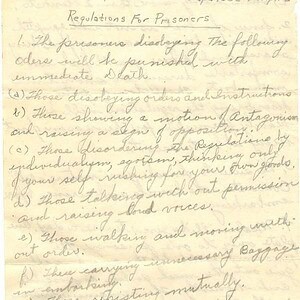 Regulations For Prisoners
1. The prisoners disobeying The following
oders will be punished with
immediate Death.
(a) Those disobeying orders and Instructions
b) Those showing a motion of Antagonism
and raising a sign of opposition.
(c) Those disordering the Regulations by
individualism, egoism, Thinking only
of your self rushing for your own goods.
d) Those Talking with out permission
and raising loud voices.
e) Those walking and moving with
out order.
f) Those carrying unnecessary Baggage
in embarking.
Those resisting mutually.